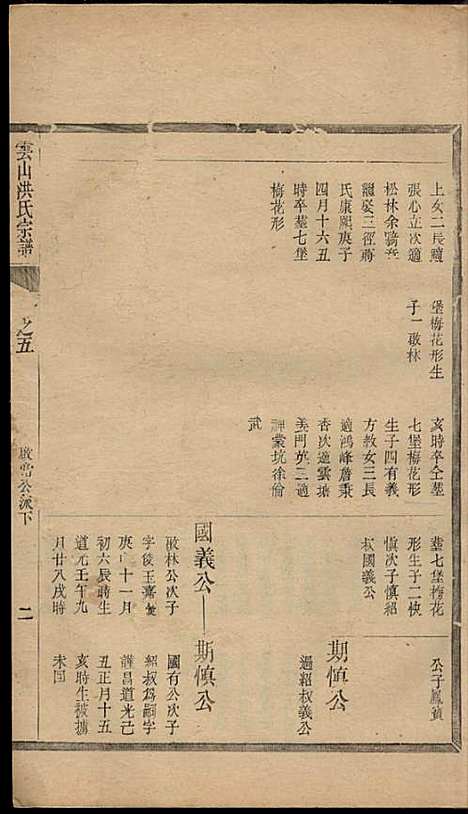 上女二長適
張心立次適
松林余鶚音
繼娶三徑蔣
氏康熙庚子
四月十六丑
時卒塟七堡
梅花形
堡梅花形生
子一啟林
亥時卒仝塟
七堡梅花形
生子四有義
方教女三長
適鴻峰詹秉
香次適雲塘
姜門英三適
神棠坑徐倫
武
塟七堡梅花
形生子二悞
慎次子慎紹
叔國義公
國義公
啟林公次子
字後王
庚 十一月
初六辰時生
道元壬午九
月廿八戌時
公子鳳
期慎公
過紹叔義公
斯慎公
國有公次子
紹叔為嗣字
謹昌道光己
丑正月十五
亥時生被擄
未回
雲山洪氏宗譜
之五
啟 公派下
二